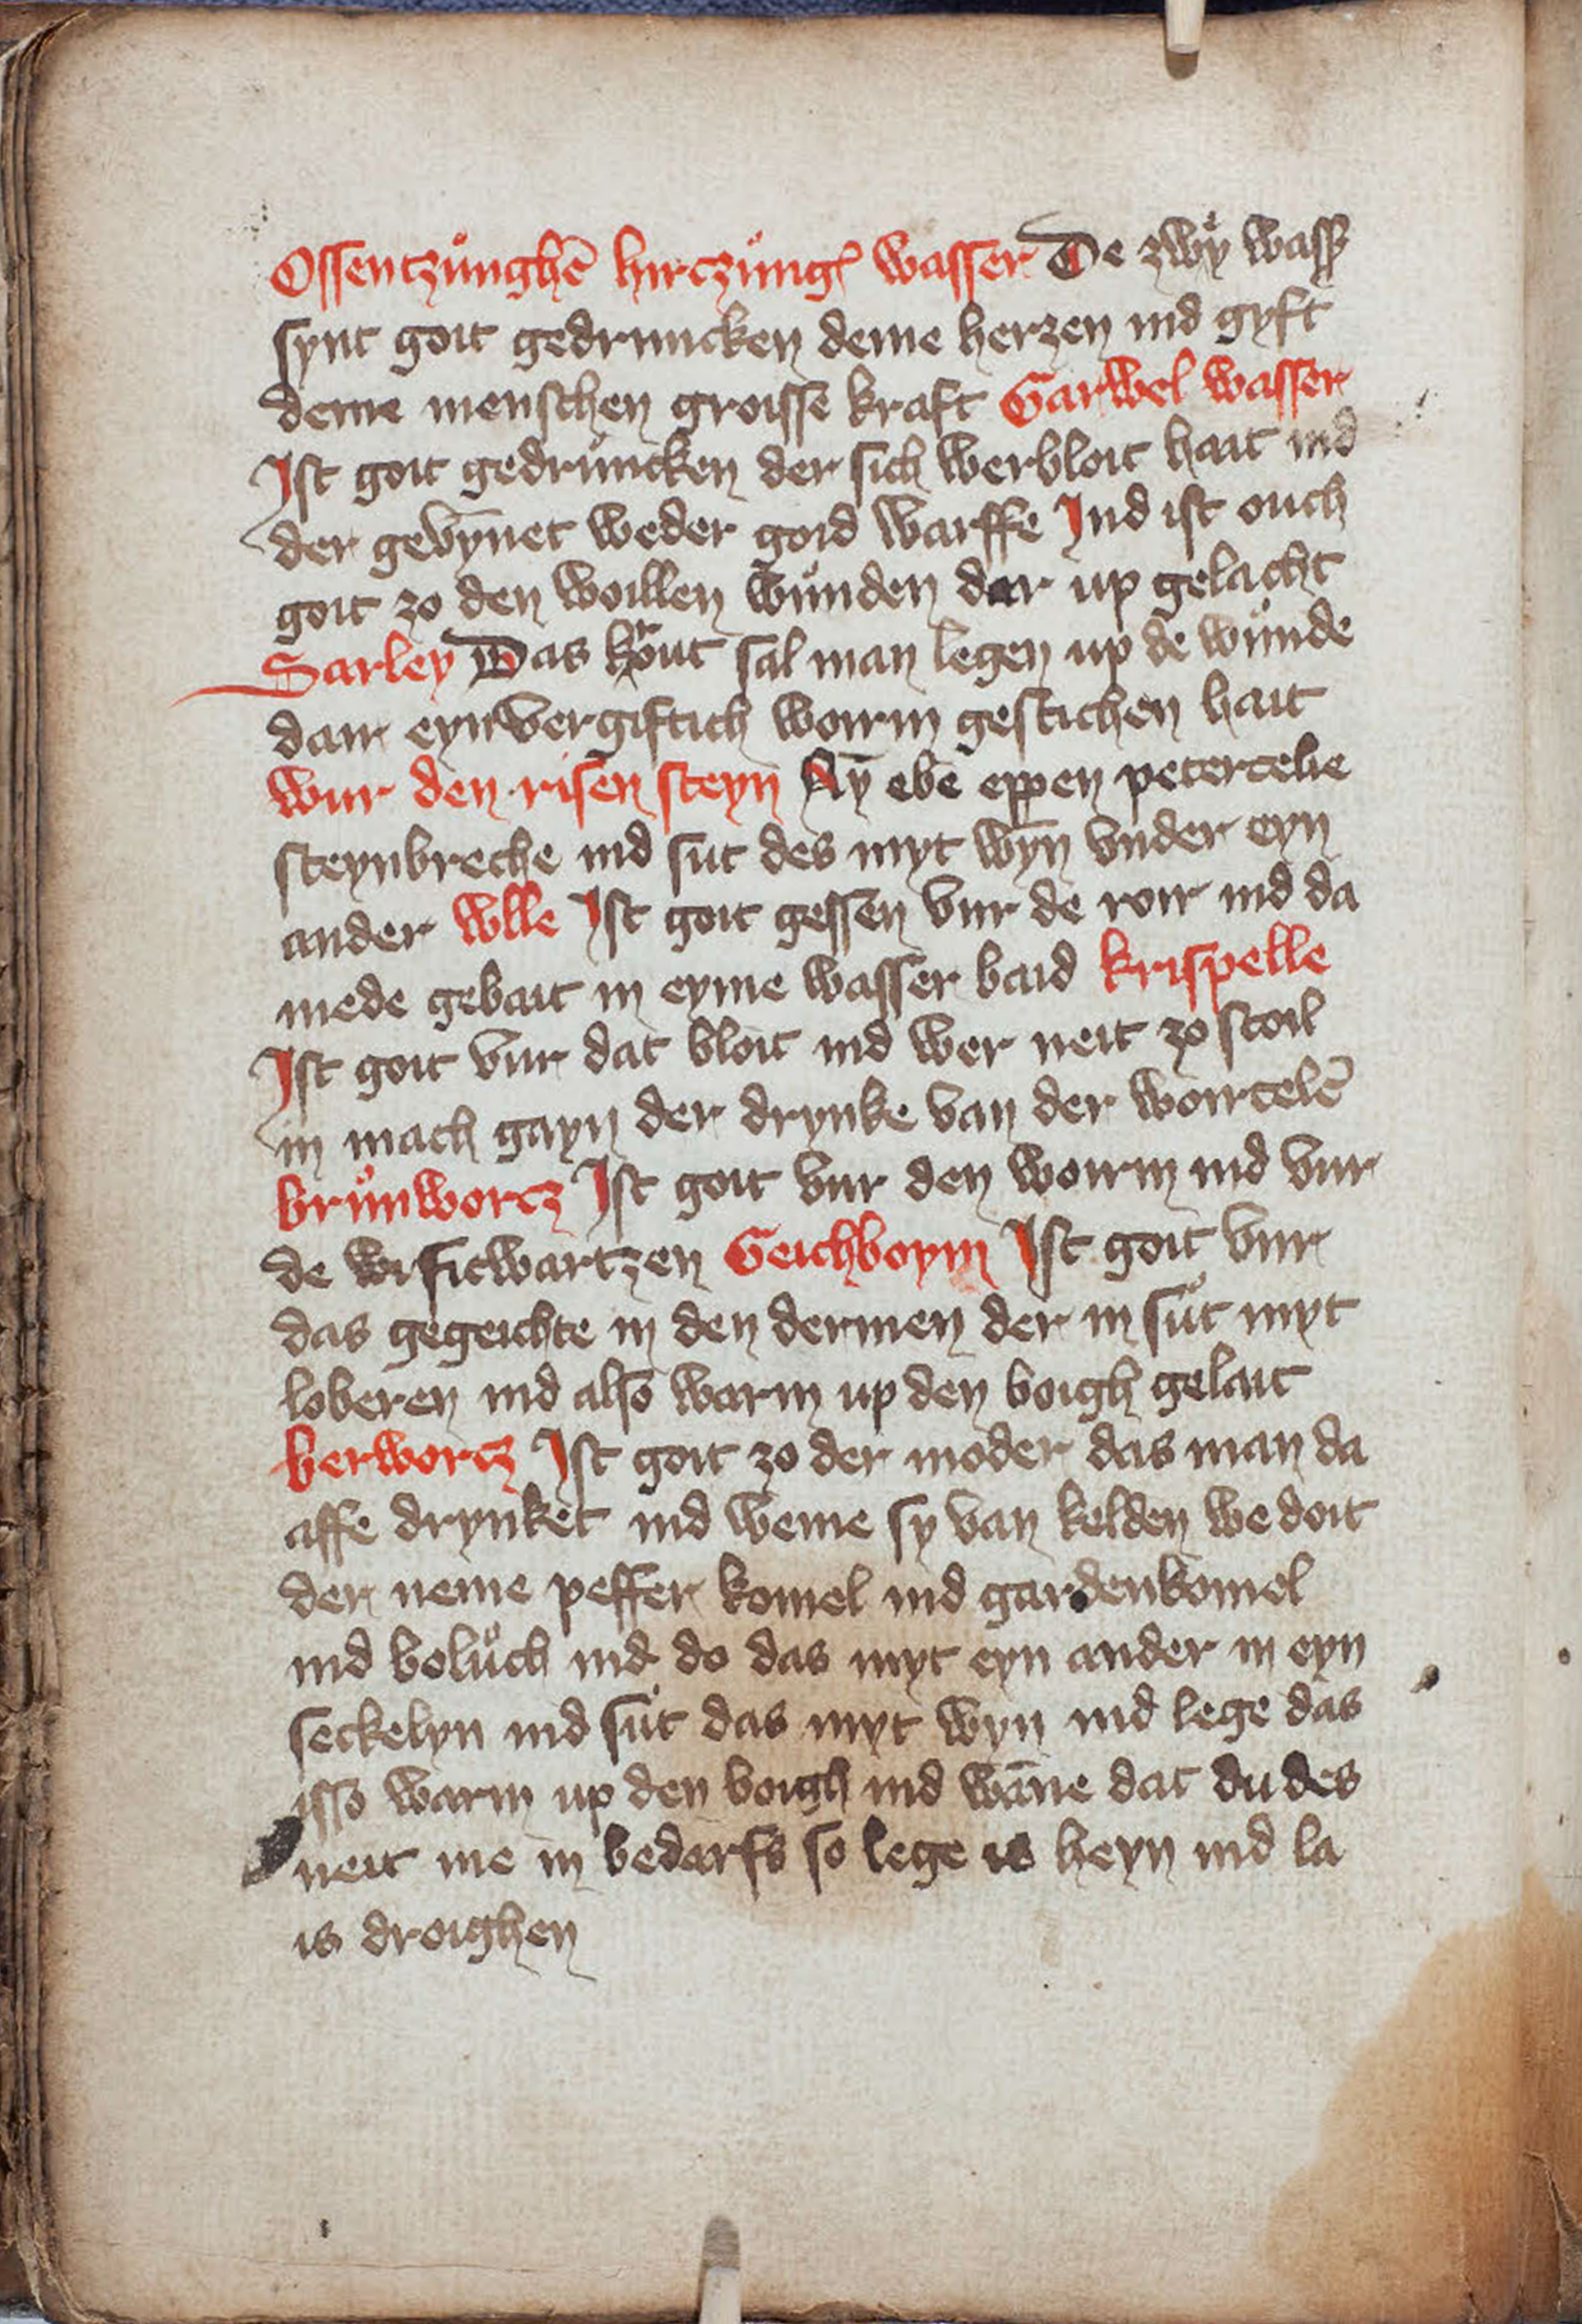 Ossentzůnghē hirczůngᷤ wasser De zwÿ wass
synt goit gedruncken deme herzen ind gyft
deme menschen groisse kraft Garwel wasser
Ist goit gedrůncken der sich werbloit hait ind
der gevȳnet weder goid warffe Ind ist ouch
goit zo den woillen wůnden dar up gelacht
Sarley Das krout sal man legen up de wůnde
dair eyn vergiftich woirm gestichen hait
wur den risen steyn Ny̅ ebē eppen petercelie
steynbreche ind sut des myt wȳn vnder eyn
ander wlle Ist goit gessen vur de roir ind da
mede gebait in eyme wasser baid krispelle
Ist goit vur dat bloit ind wer neit zo stoil
in mach gayn der drynke van der woircelē
brůnworcz Ist goit vur den woirm ind vur
de wisitwartzen Geichboym Ist goit vur
das gegeichte in den dermen der in sůt myt
loberen ind also warm up den boigh gelait
berworcz Ist goit zo der moder das man da
affe drynket ind weme sy van kelden we doit
der neme peffer komel ind gardenkomel
ind bolůch ind do das myt eyn ander in eyn
seckelyn ind sůt das myt wyn ind lege das
isso warm up den boigh ind wāne dat du des
neit me in bedarfs so lege is heyn ind la
is droighen